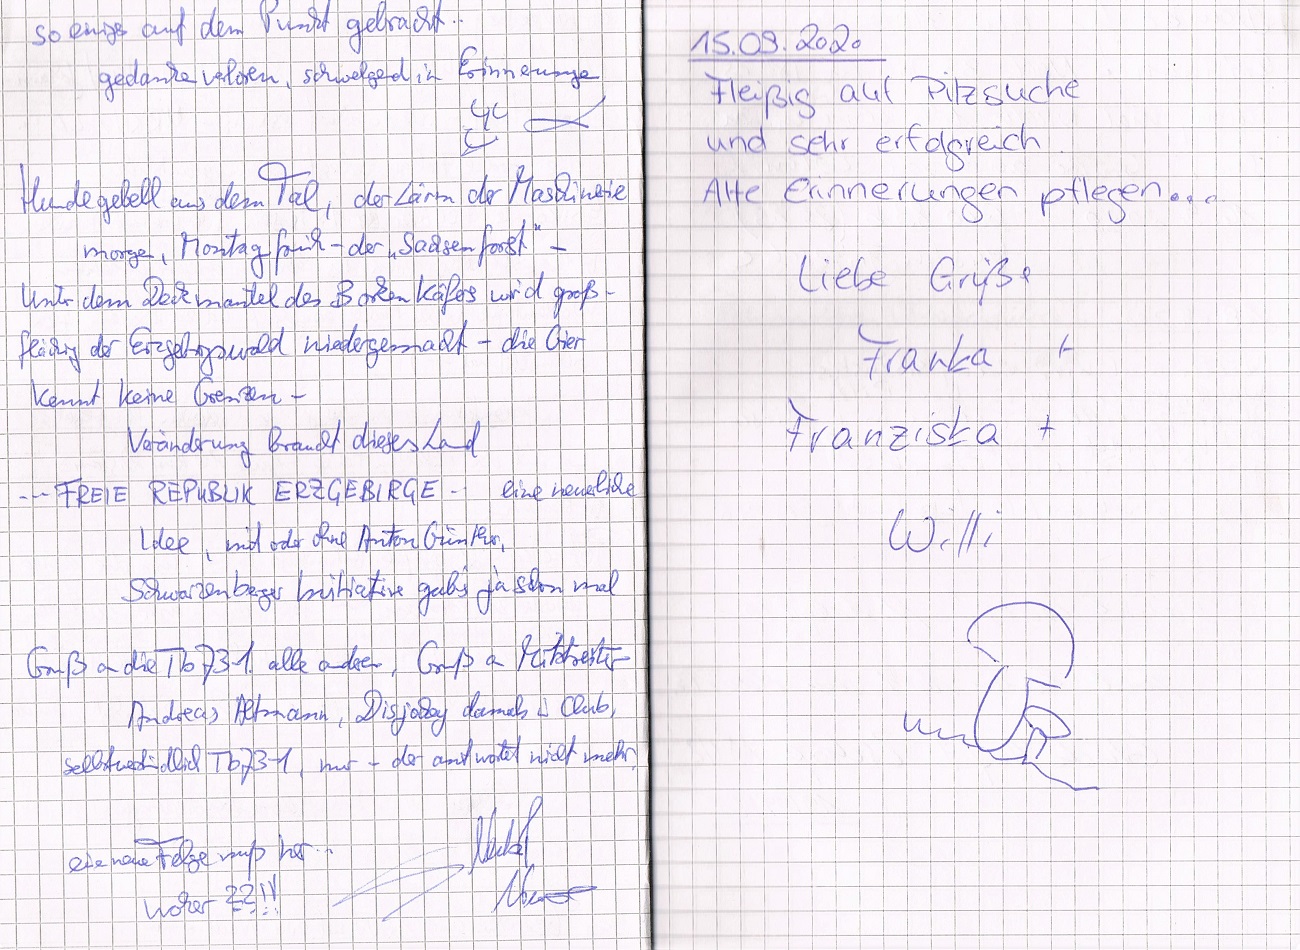 so einiges auf dem Punkt gebracht..
gedankenverloren, schwelgend in Erinnerunge
Hundegebell aus dem Tal, der Lärm der Maschinerie
morgen, Montag früh - der "Sachsenforst" -
Unter dem Deckmantel des Borkenkäfers wird groß-
flächig der Erzgebirgswald niedergemacht - die Gier
kennt keine Grenzen -
Veränderung braucht dieses Land
--- FREIE REPUBLIK ERZGEBIRGE -- eine neuerliche
Idee, mit oder ohne Anton Günther,
Schwarzenberger Initiative gab's ja schon mal
Gruß an die Tb73-1 alle anderen, Gruß an Mitstreiter
Andreas Altmann, Disjockey damals i Club,
selbstverständlich Tb73-1, nur - der antwortet nicht mehr
eine neue Folge muß her...
woher ??!!
15.09.2020
Fleißig auf Pilzsuche
und sehr erfolgreich.
Alte Erinnerungen pflegen...
Liebe Grüße
Franka +
Franziska +
Willi